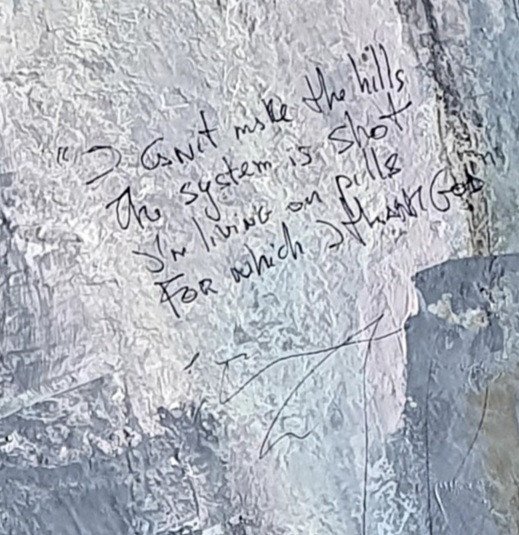 "I can't make the hills
The system is shot
I'm living on pills
For which I thank God